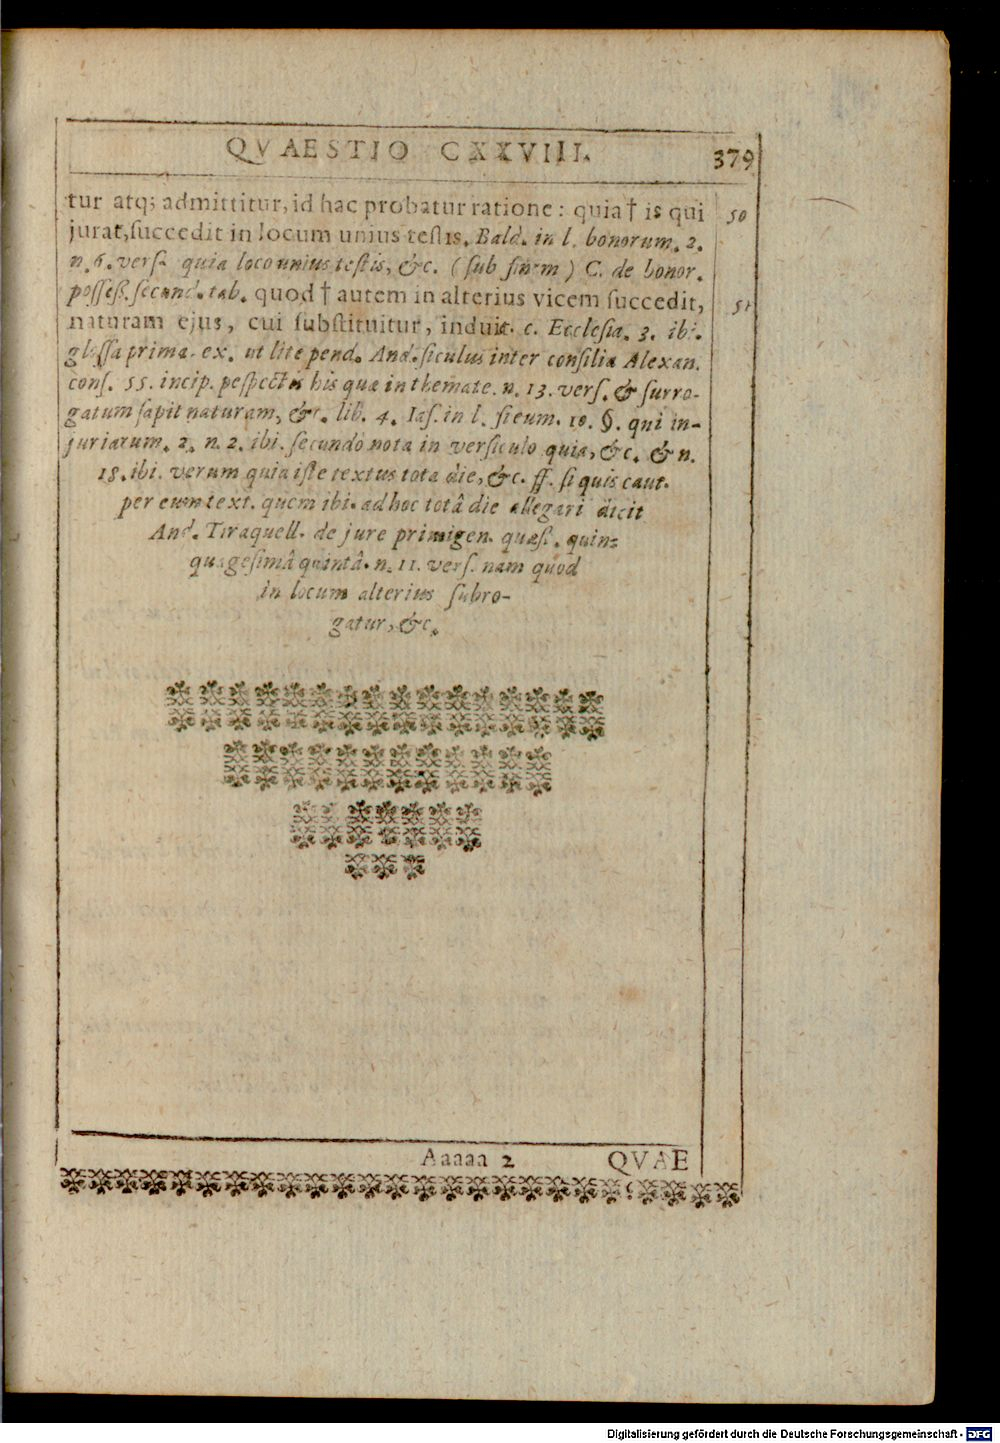 QVAESTIO CXXVIII. 379
tur atq; admittitur, id hac probatur ratione: quia † is qui 50
jurat, succedit in locum unius testis. Bald. in l. bonorum. 2.
n. 6. vers. quia loco unius testis, &c. (sub finem) C. de bonor.
possess. secund. tab. quod † autem in alterius vicem succedit, 51
naturam ejus, cui substituitur, induit. c. Ecclesia. 3. ibi.
glossa prima. ex. ut lite pend. And. siculus inter consilia Alexan.
cons. 55. incip. pespectis his quæ in themate. n. 13. vers. & surro-
gatum sapit naturam, &c. lib. 4. Ias. in l. si eum. 10. §. qui in-
juriarum. 2. n. 2. ibi. secundò nota in versiculo quia, &c. & n.
18. ibi. verum quia iste textus tota die, &c. ff. si quis caut.
per eum text. quem ibi. ad hoc totâ die allegari dicit
And. Tiraquell. de jure primigen. quæst. quin-
quagesimâ quintâ. n. 11. vers. nam quod
in locum alterius subro-
gatur, &c.
Aaaaa 2 QVAE
Digitalisierung gefördert durch die Deutsche Forschungsgemeinschaft - DFG